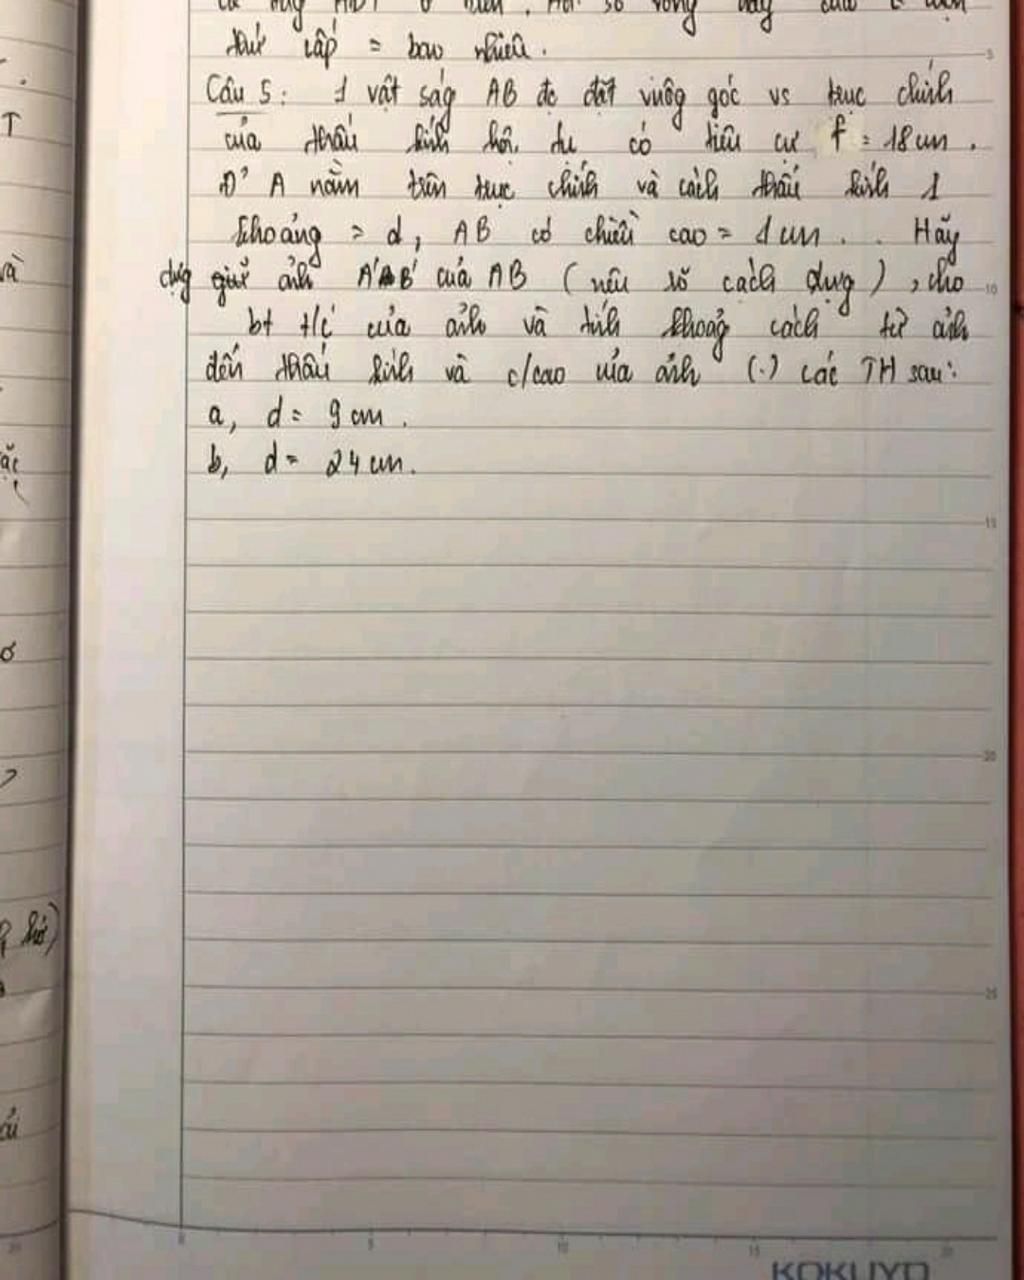 thứ cấp = bao nhiêu.
Câu 5: 1 vật ság AB đc đặt vuôg góc vs trục chính
của thấu kính hội tụ có tiêu cự f = 18 cm.
Đ' A nằm trên trục chính và cách thấu kính 1
khoảng = d, AB có chiều cao = 1 cm. Hãy
dựg ảnh A'B' của AB (nêu rõ cách dựng), cho
bt t/c của ảnh và tính khoảg cách từ ảnh
đến thấu kính và c/cao của ảnh (.) các TH sau:
a, d = 9 cm.
b, d = 24 cm.
T
và
5
10
15
20
25
0 5 10 15 20
KOKUYO